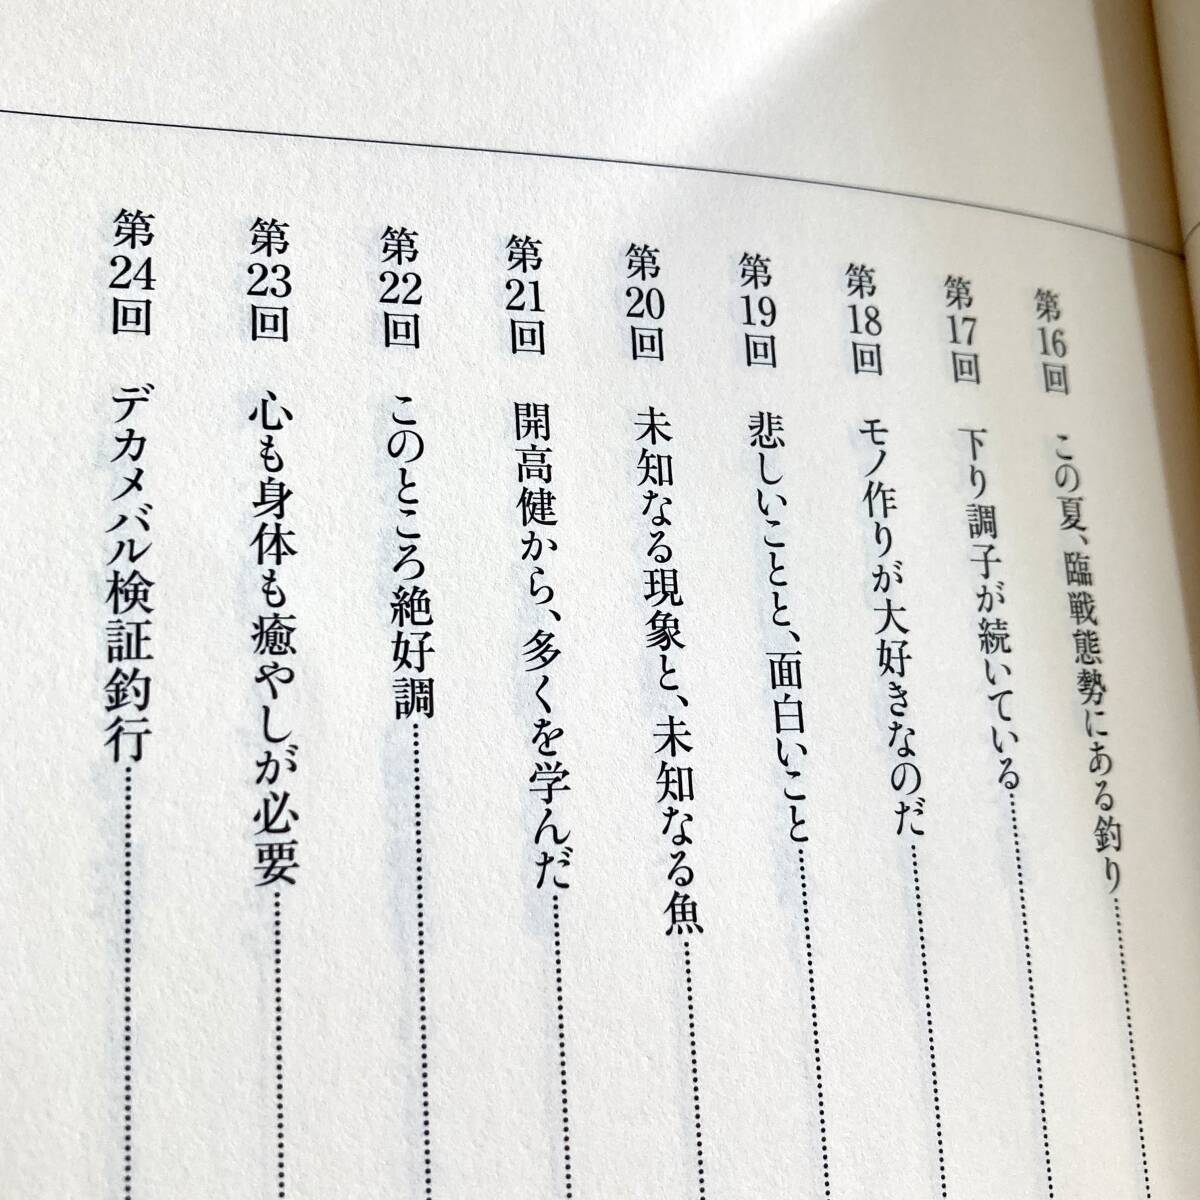 第16回 この夏、臨戦態勢にある釣り
第17回 下り調子が続いている
第18回 モノ作りが大好きなのだ
第19回 悲しいことと、面白いこと
第20回 未知なる現象と、未知なる魚
第21回 開高健から、多くを学んだ
第22回 このところ絶好調
第23回 心も身体も癒やしが必要
第24回 デカメバル検証釣行